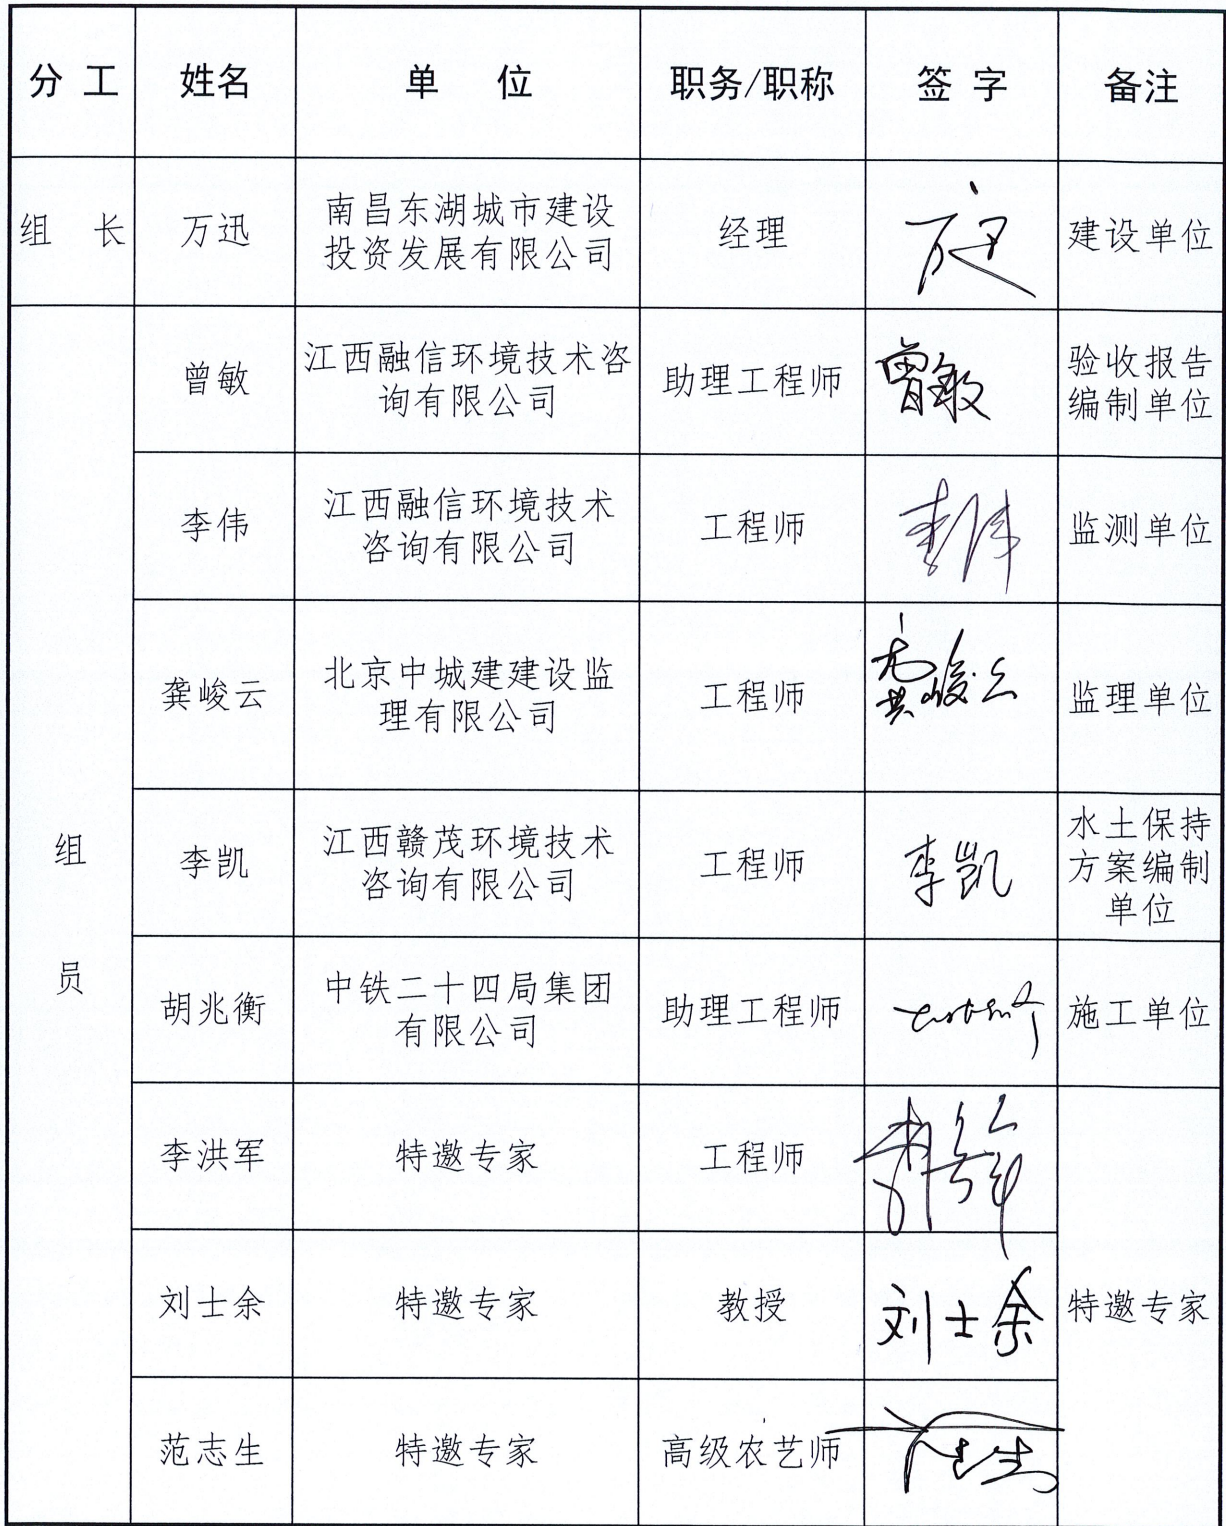 分 工 姓名 单 位 职务/职称 签 字 备注
组 长 万迅 南昌东湖城市建设
投资发展有限公司 经理 万迅 建设单位
曾敏 江西融信环境技术咨
询有限公司 助理工程师 曾敏 验收报告
编制单位
李伟 江西融信环境技术
咨询有限公司 工程师 李伟 监测单位
龚峻云 北京中城建建设监
理有限公司 工程师 龚峻云 监理单位
组
员
李凯 江西赣茂环境技术
咨询有限公司 工程师 李凯 水土保持
方案编制
单位
胡兆衡 中铁二十四局集团
有限公司 助理工程师 施工单位
李洪军 特邀专家 工程师
刘士余 特邀专家 教授 刘士余 特邀专家
范志生 特邀专家 高级农艺师